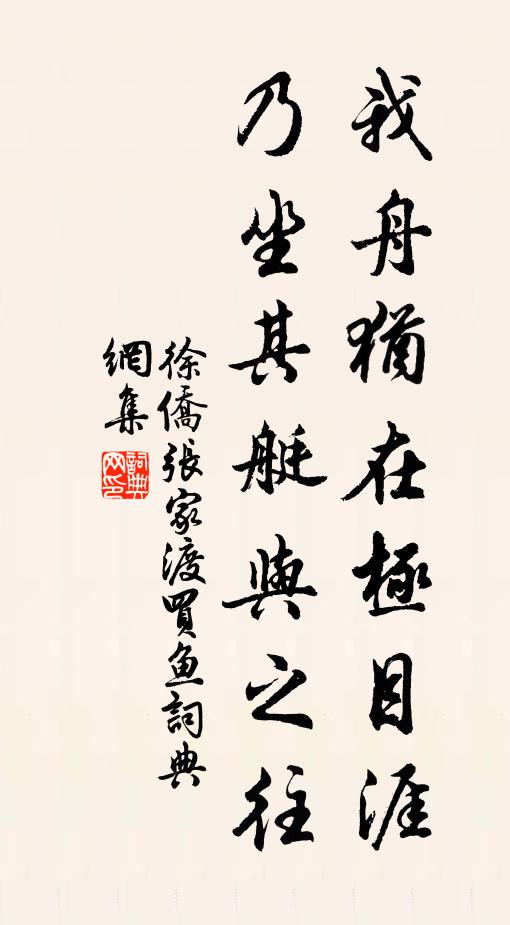 我舟猶在極目涯
乃坐其艇與之往
徐僑張家渡買鱼詞典
網集
詞典
网印